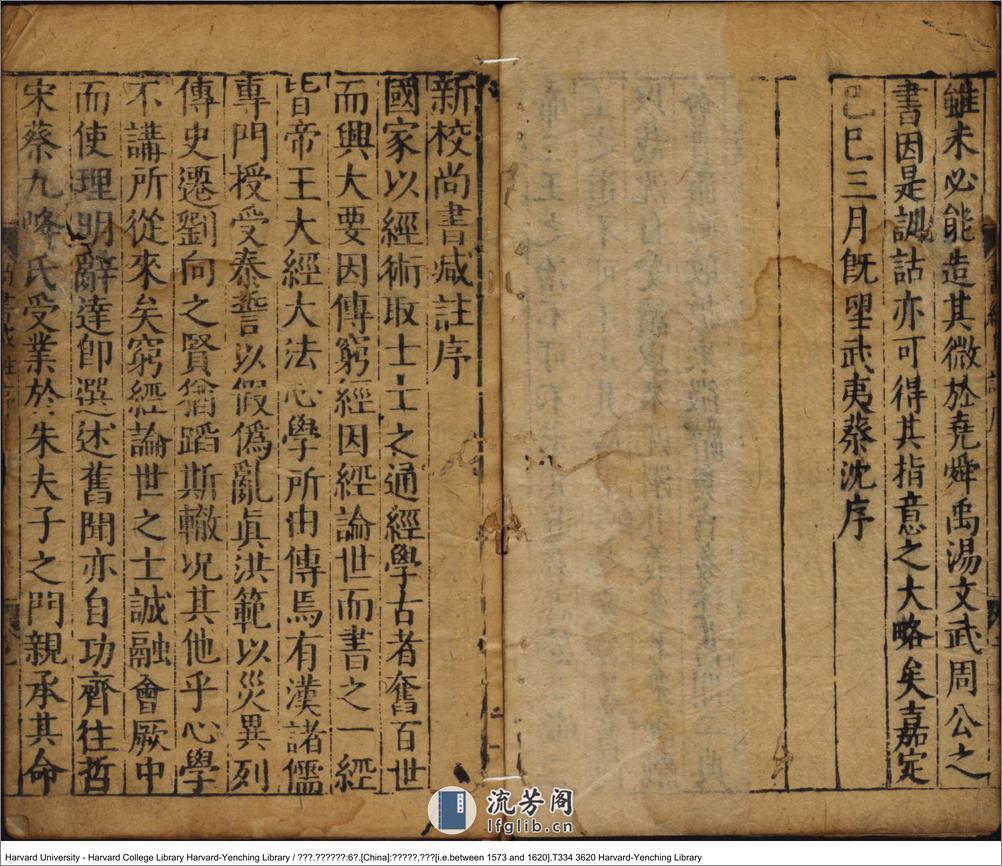 雖未必能造其微於堯舜禹湯文武周公之
書因是訓詁亦可得其指意之大略矣嘉定
己巳三月旣望武夷蔡沈序
新校尚書減註序
國家以經術取士士之通經學古者奮百世
而興大要因傳窮經因經論世而書之一經
皆帝王大經大法心學所由傳焉有漢諸儒
專門授受泰誓以假僞亂眞洪範以災異列
傳史遷劉向之賢猶蹈斯轍况其他乎心學
不講所從來矣窮經論世之士誠融會厥中
而使理明辭達卽選述舊聞亦自功齊往哲
宋蔡九峰氏受業於朱夫子之門親承其命
流芳阁
lfglib.cn
Harvard University - Harvard College Library Harvard-Yenching Library / ???.??????:6?.[China]:?????,???[i.e.between 1573 and 1620].T334 3620 Harvard-Yenching Library